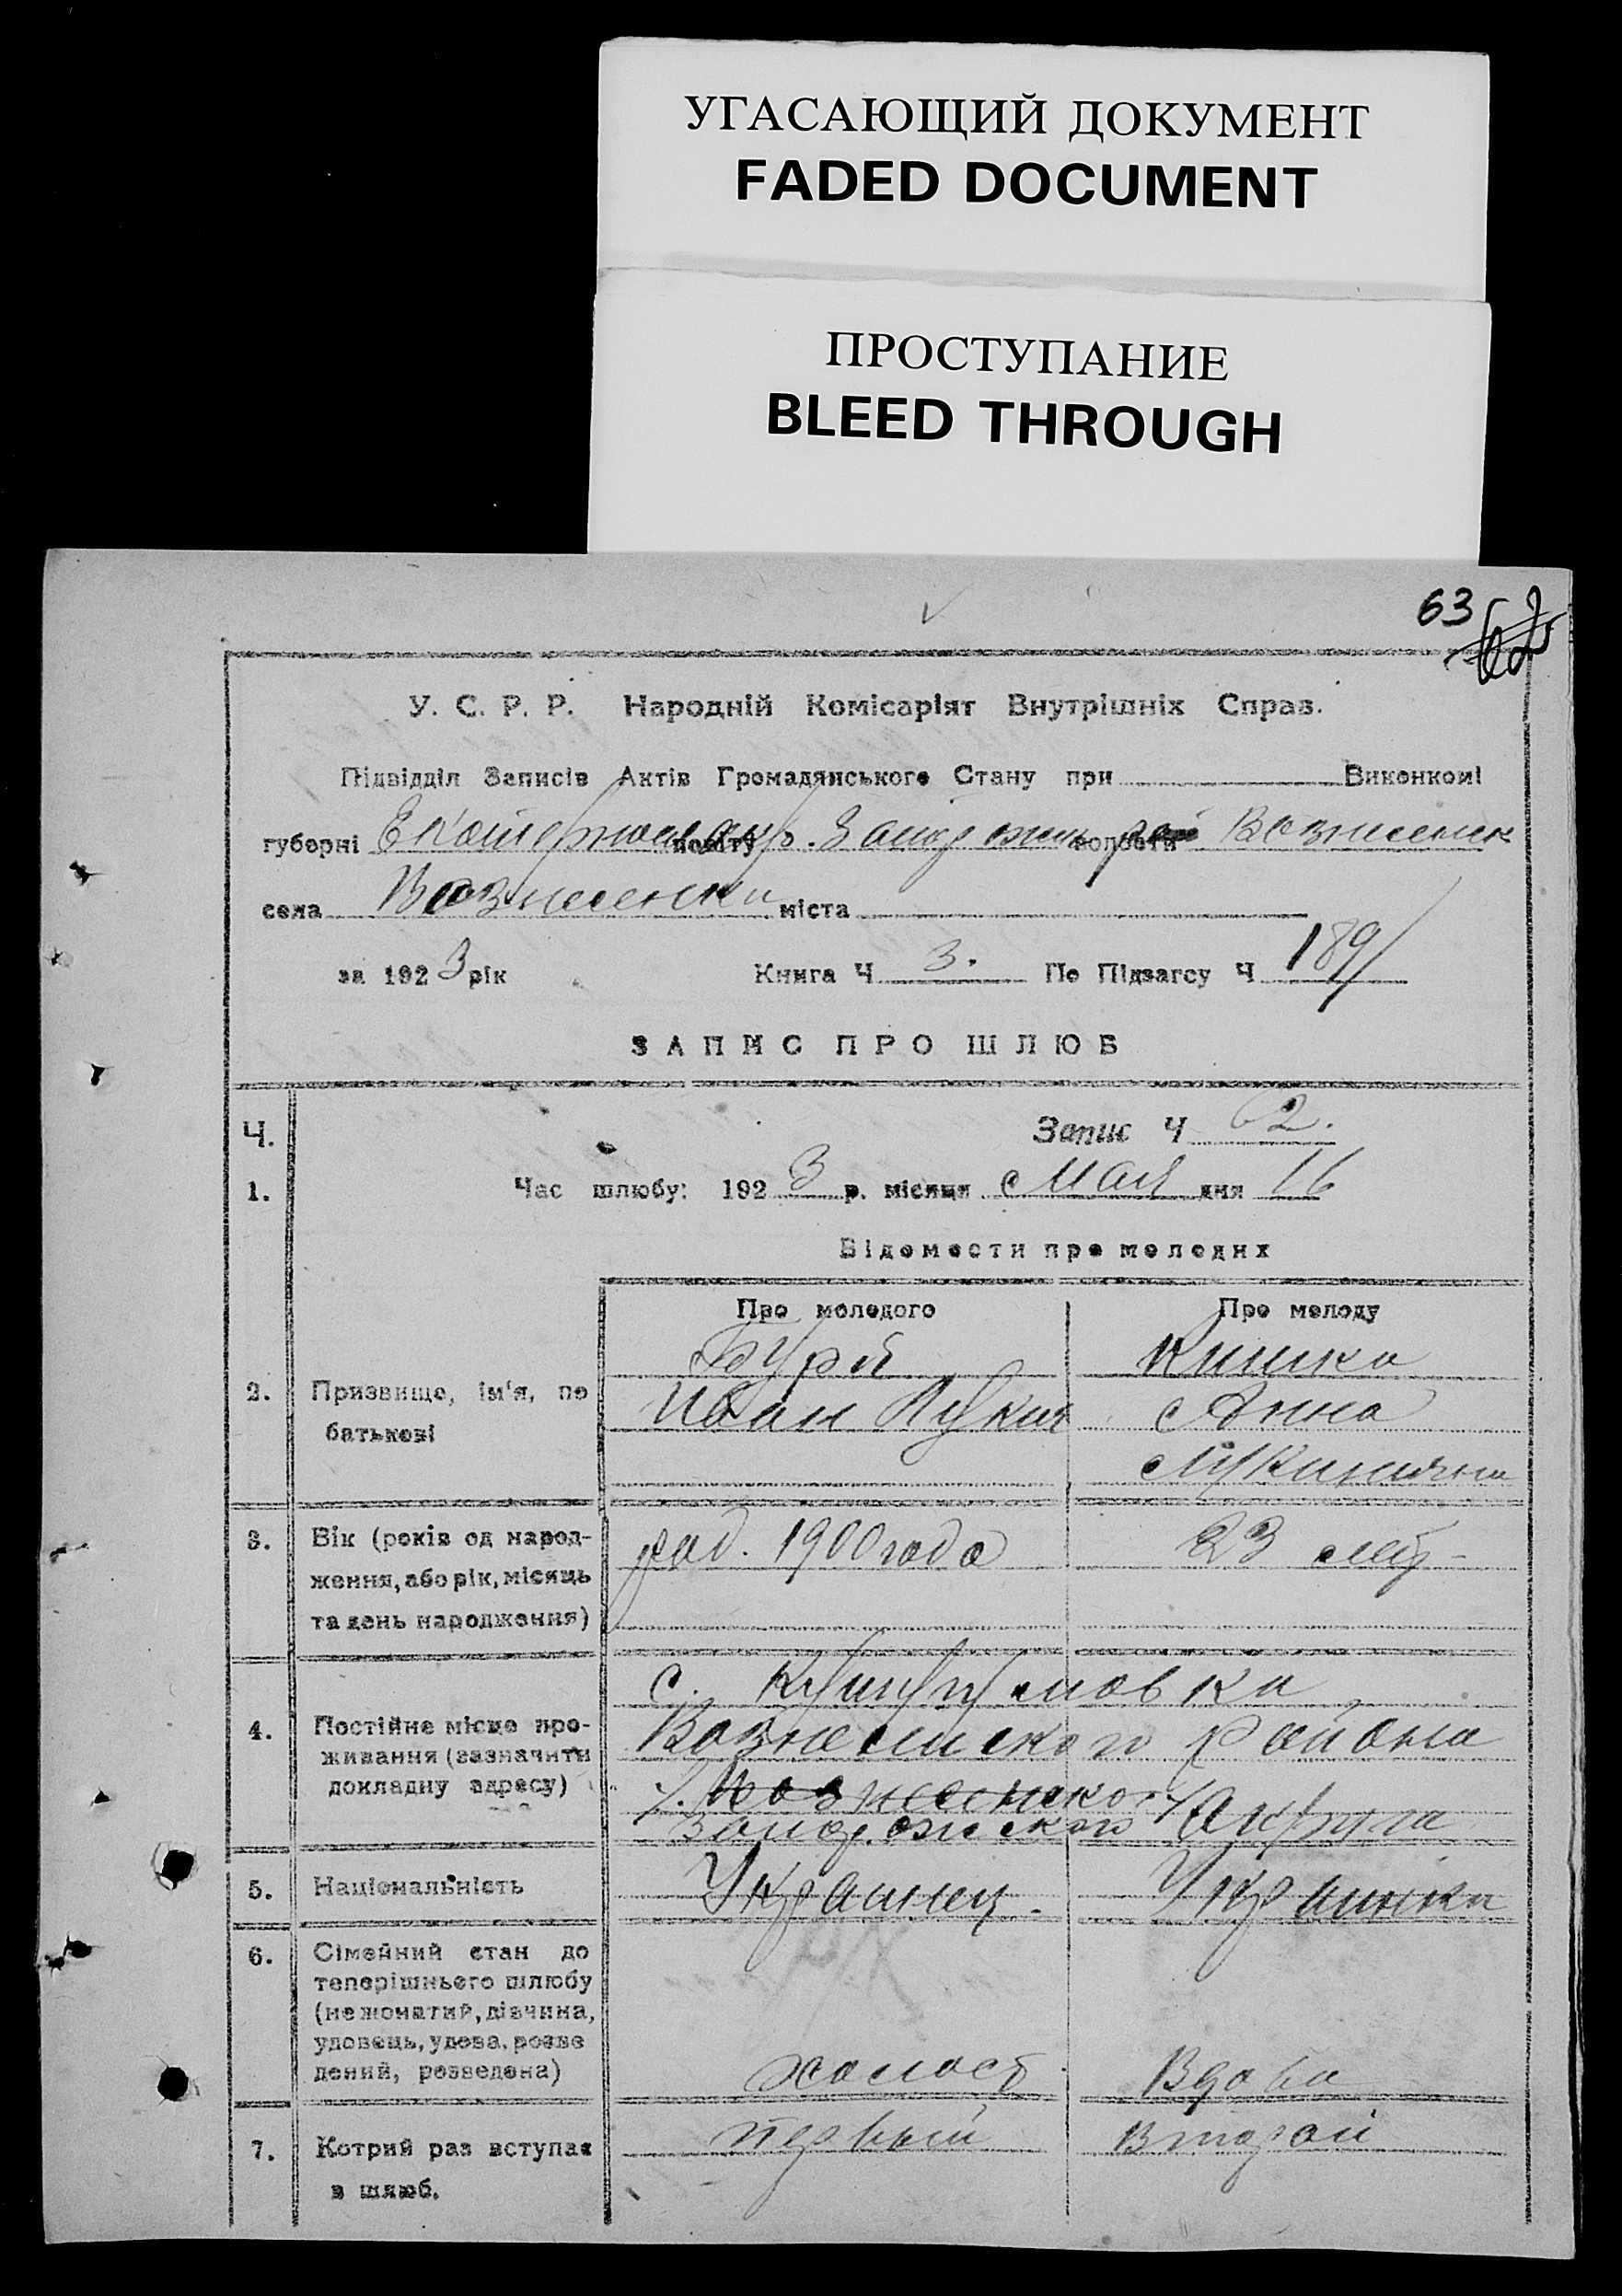 УГАСАЮЩИЙ ДОКУМЕНТ
FADED DOCUMENT
ПРОСТУПАНИЕ
BLEED THROUGH
63
У. С. Р. Р. Народній Комісаріят Внутрішніх Справ.
Підвідділ Записів Актів Громадянського Стану при Виконкомі
губерні повіту волости
села Вознесенки міста
за 1923 рік Книга Ч 3. По Підзагсу Ч 189
ЗАПИС ПРО ШЛЮБ
Ч. Запис Ч 62.
1. Час шлюбу: 1923 р. місяця Мая дня 16
Відомости про молодих
Про молодого Про молоду
Бурій Кишка
2. Призвище, ім'я, по Иван Лукич Анна
батькові
3. Вік (років од народ- род. 1900 года 23 лет
ження, або рік, місяць
та день народження)
с. Кушугумовка
4. Постійне місце про- Вознесенского района
живання (зазначити
докладну адресу)
Запорожского Округа
5. Національність Украинец. Украинка
6. Сімейний стан до
теперішнього шлюбу
(нежонатий, дівчина,
удовець, удова, розве
дений, розведена) холост. Вдова
7. Котрий раз вступає первый Второй
в шлюб.